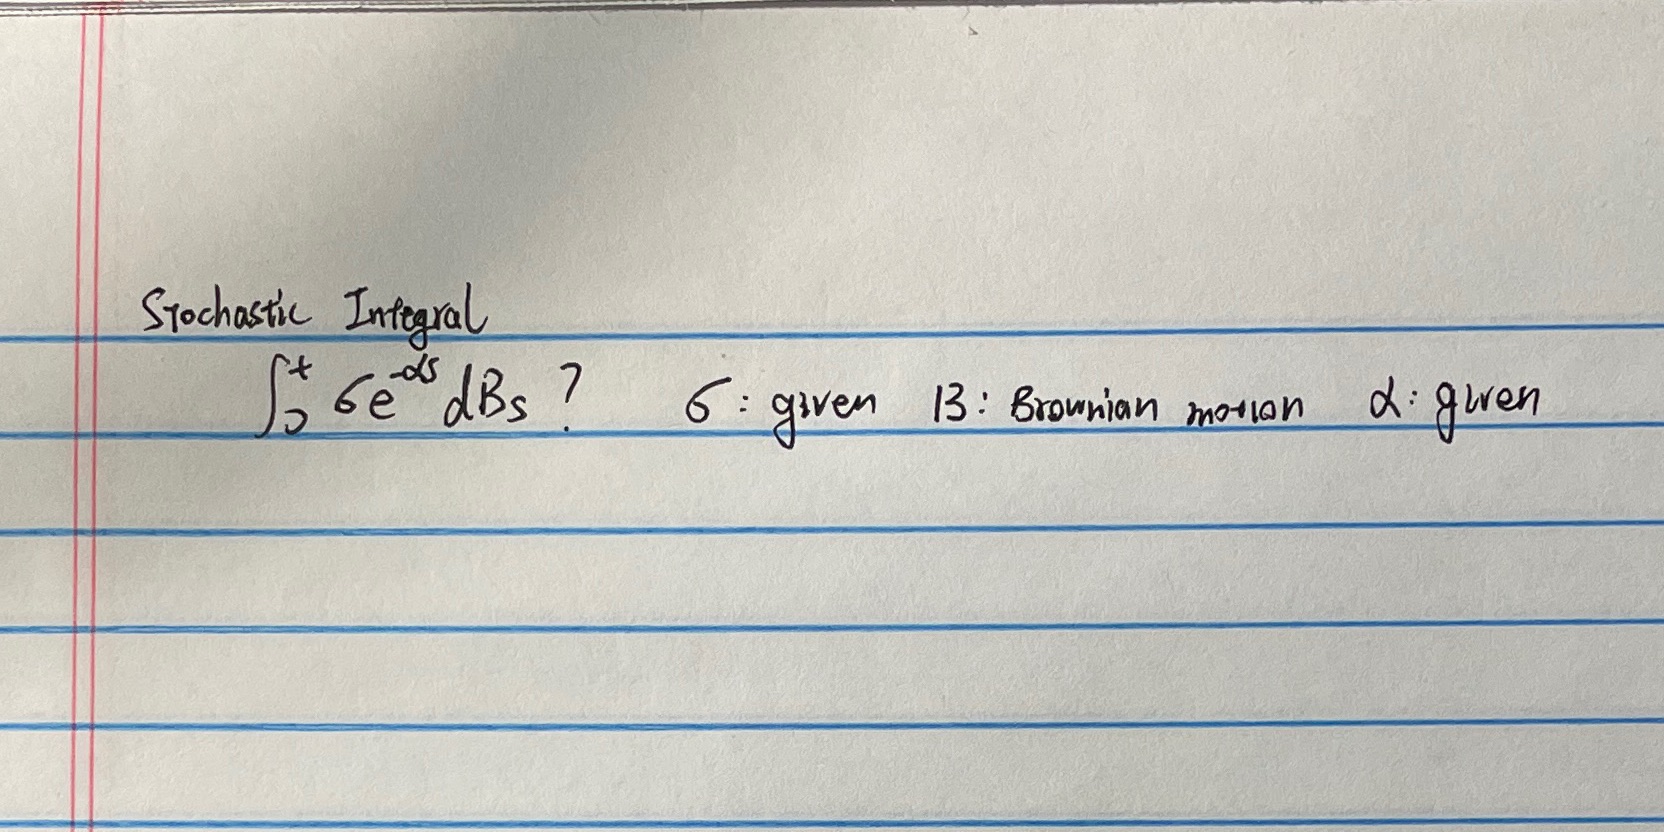 Stochastic Integral
∫₀ᵗ σe^{-αs} dBₛ ? σ: given B: Brownian motion α: given